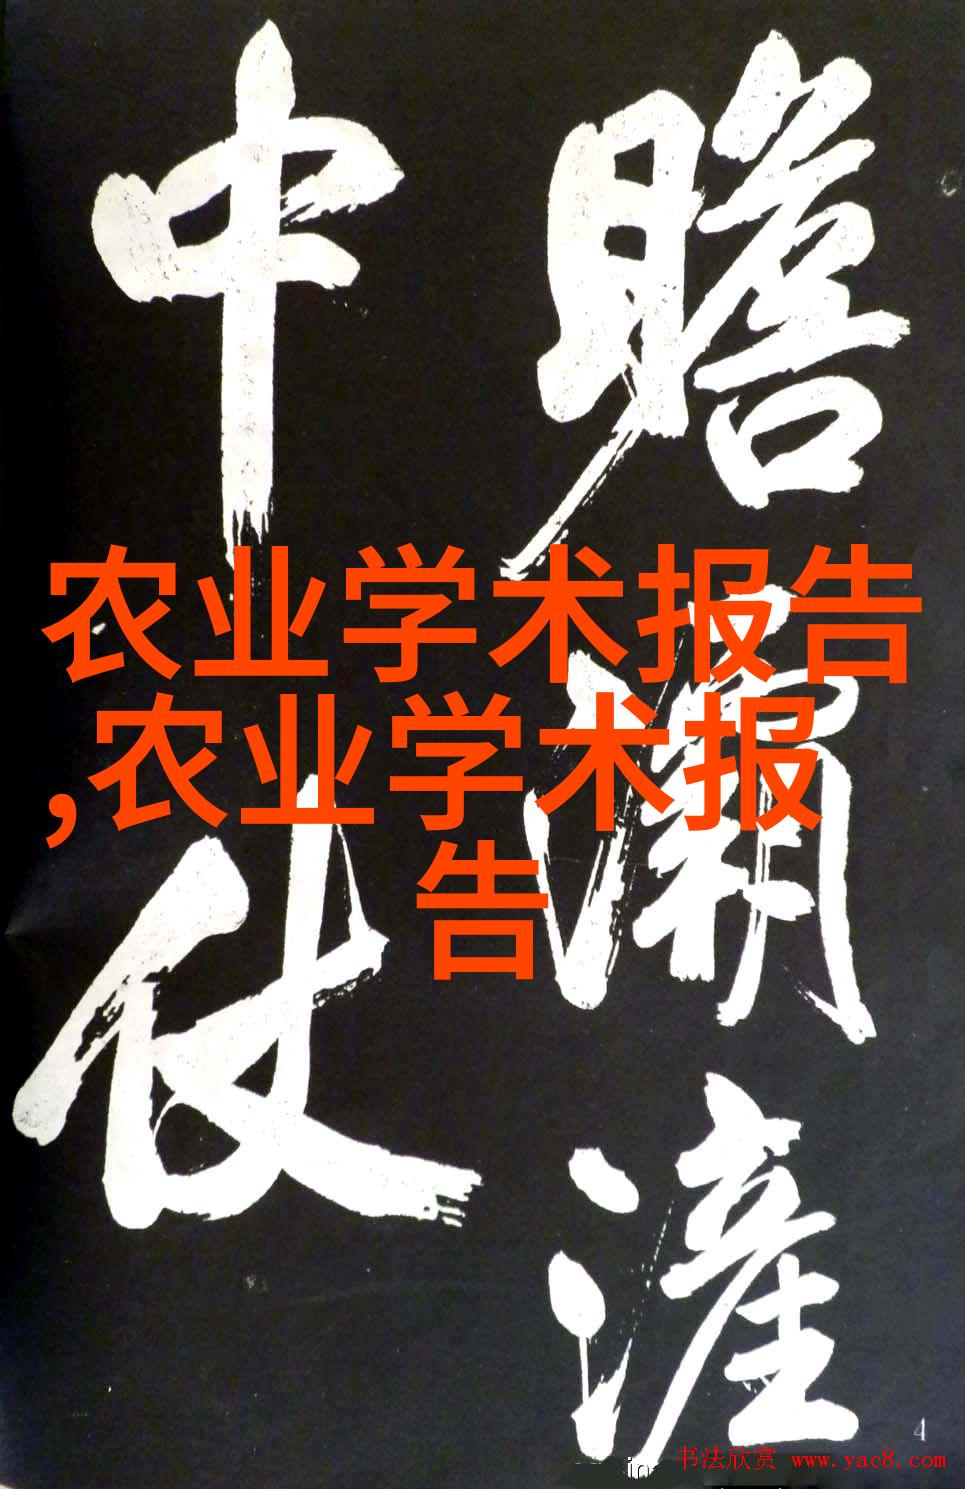 瞻
灞
滻
中
仗
农业学术报告
,农业学术报
告
4
书法欣赏 www.yac8.com